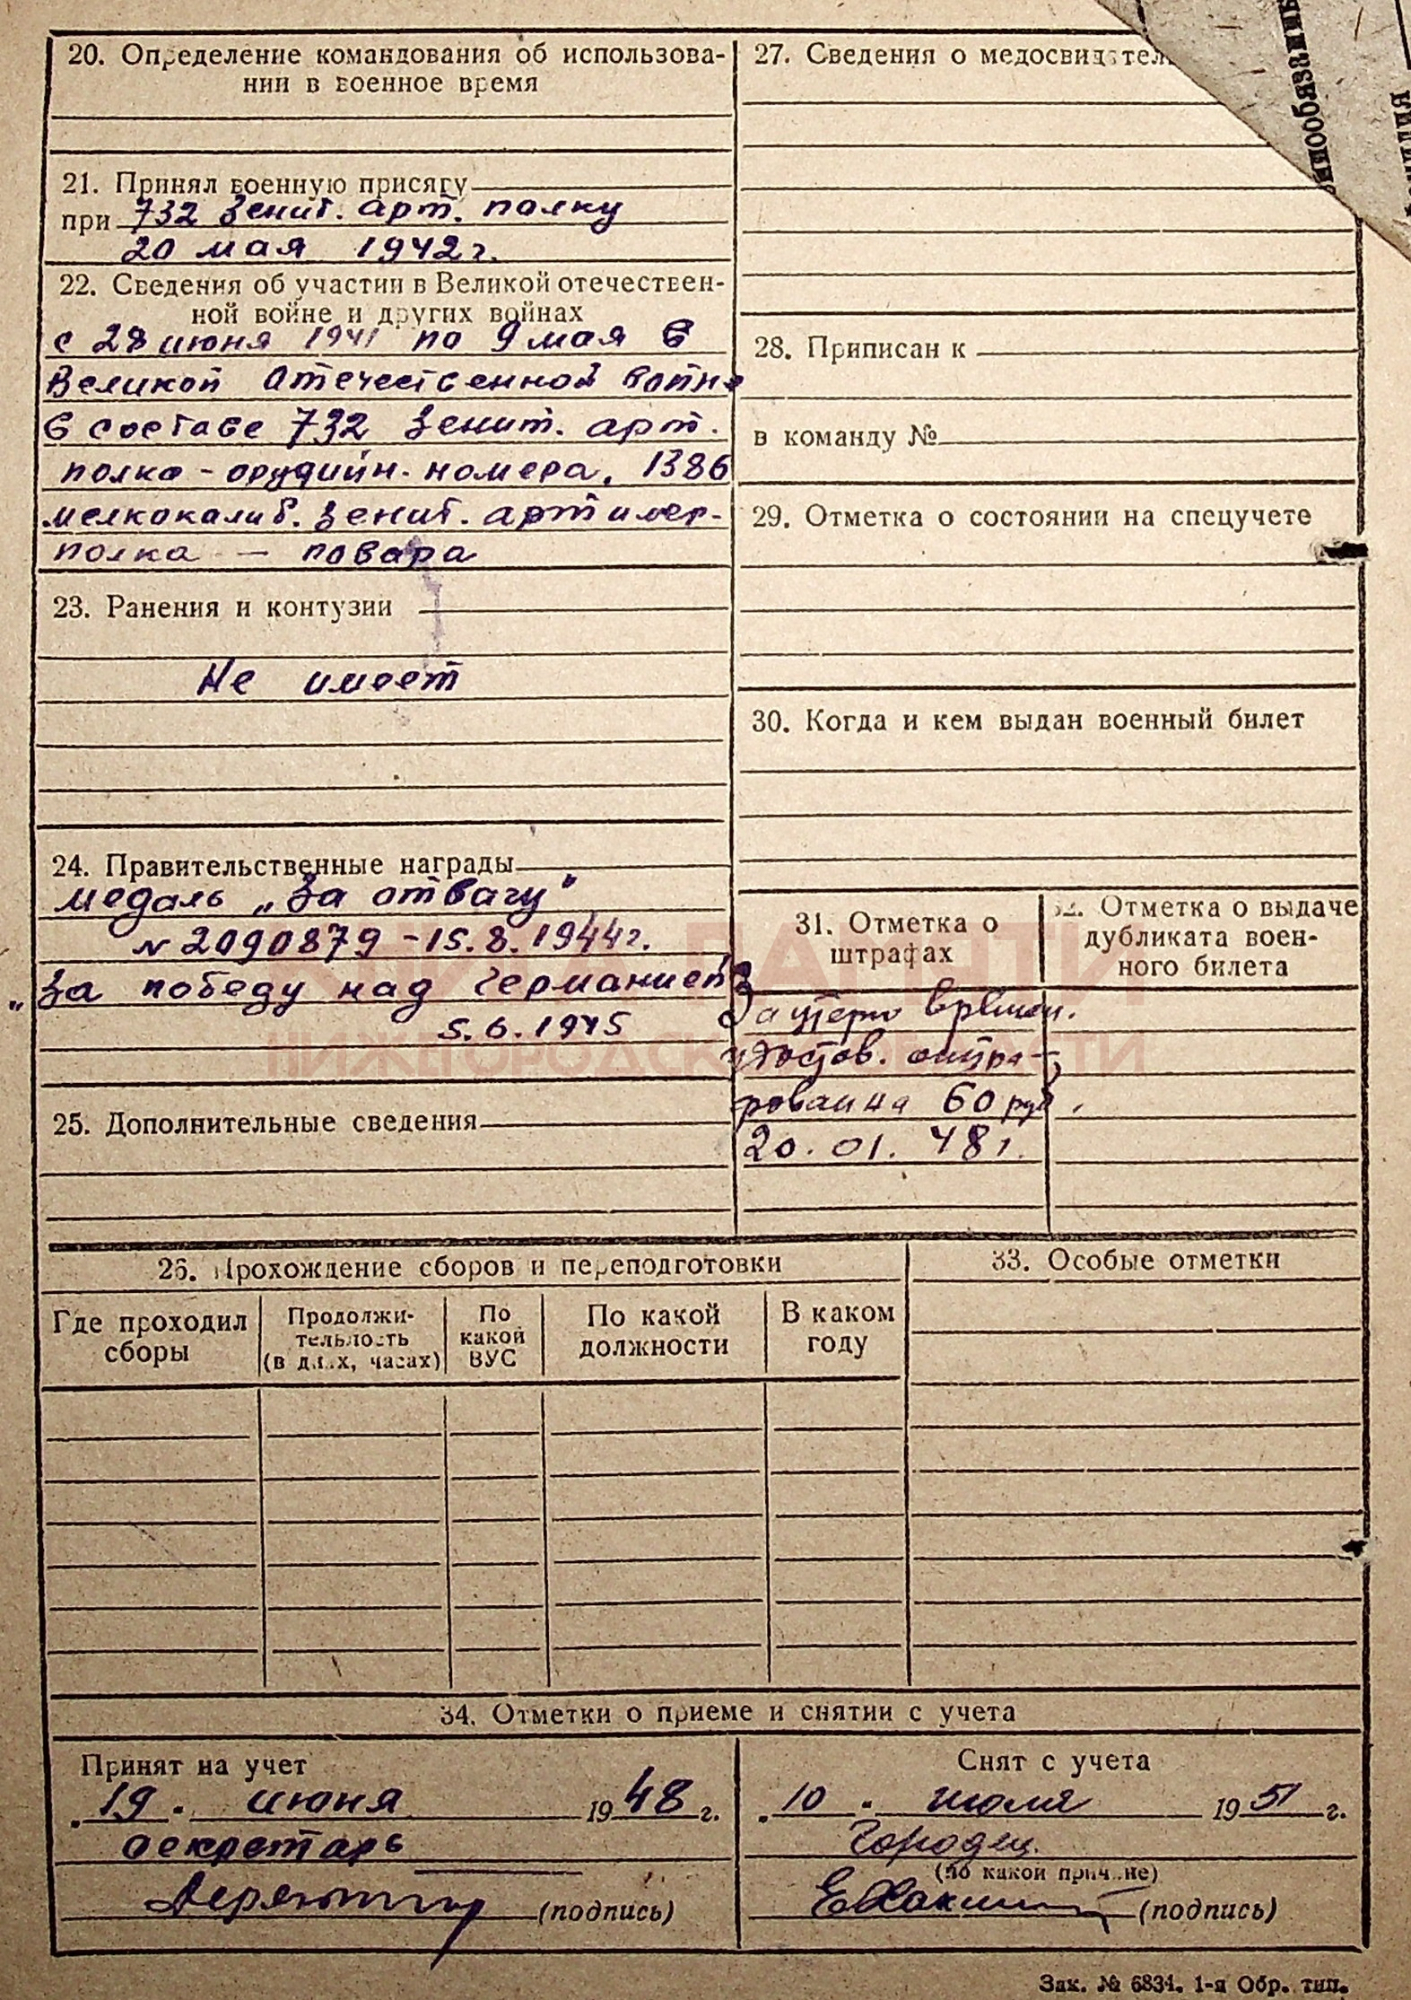 20. Определение командования об использова-
нии в военное время
21. Принял военную присягу
при 732 зенит. арт. полку
20 мая 1942 г.
22. Сведения об участии в Великой отечествен-
ной войне и других войнах
с 28 июня 1941 по 9 мая в
Великой Отечественной войне
в составе 732 зенит. арт.
полка - орудийн. номера, 1386
мелкокалиб. зенит. артилер-
полка — повара
23. Ранения и контузии
Не имеет
24. Правительственные награды
медаль „За отвагу"
№ 2090879 - 15.8.1944 г.
„За победу над Германией"
5.6.1945
25. Дополнительные сведения
27. Сведения о медосвидетель
28. Приписан к
в команду №
29. Отметка о состоянии на спецучете
30. Когда и кем выдан военный билет
31. Отметка о
штрафах
За утерю времен.
удостов. оштра-
рована 60 руб.
20.01.48 г.
32. Отметка о выдаче
дубликата воен-
ного билета
КНИГА ПАМЯТИ
НИЖЕГОРОДСКОЙ ОБЛАСТИ
26. Прохождение сборов и переподготовки
Где проходил
сборы
Продолжи-
тельность
(в днях, часах)
По
какой
ВУС
По какой
должности
В каком
году
33. Особые отметки
34. Отметки о приеме и снятии с учета
Принят на учет
„19" июня 1948 г.
секретарь
(подпись)
Снят с учета
„10" июля 1951 г.
Городец
(по какой причине)
(подпись)
Зак. № 6834. 1-я Обр. тип.